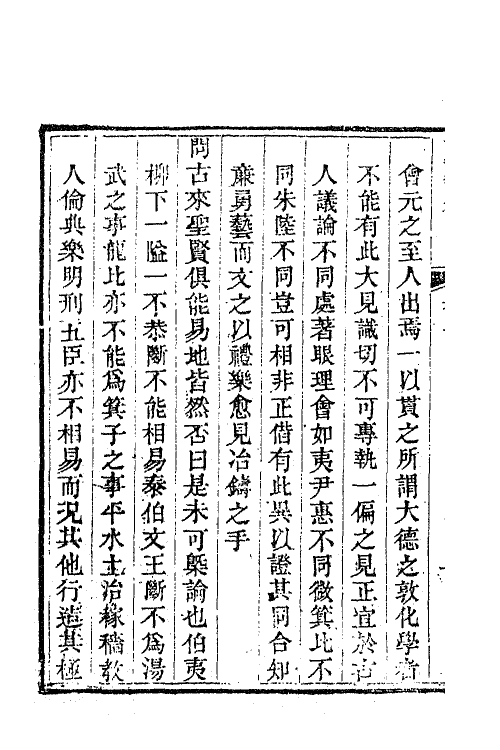 會元之至人出焉一以貫之所謂大德之敦化學者
不能有此大見識切不可專執一偏之見正宜於古
人議論不同處著眼理會如夷尹惠不同微箕比不
同朱陸不同豈可相非正借有此異以證其同合知
廉勇藝而文之以禮樂愈見冶鑄之手
問古來聖賢俱能易地皆然否曰是未可槩論也伯夷
柳下一隘一不恭斷不能相易泰伯文王斷不為湯
武之事龍比亦不能為箕子之事平水土治稼穡敎
人倫典樂明刑五臣亦不相易而況其他行造其極